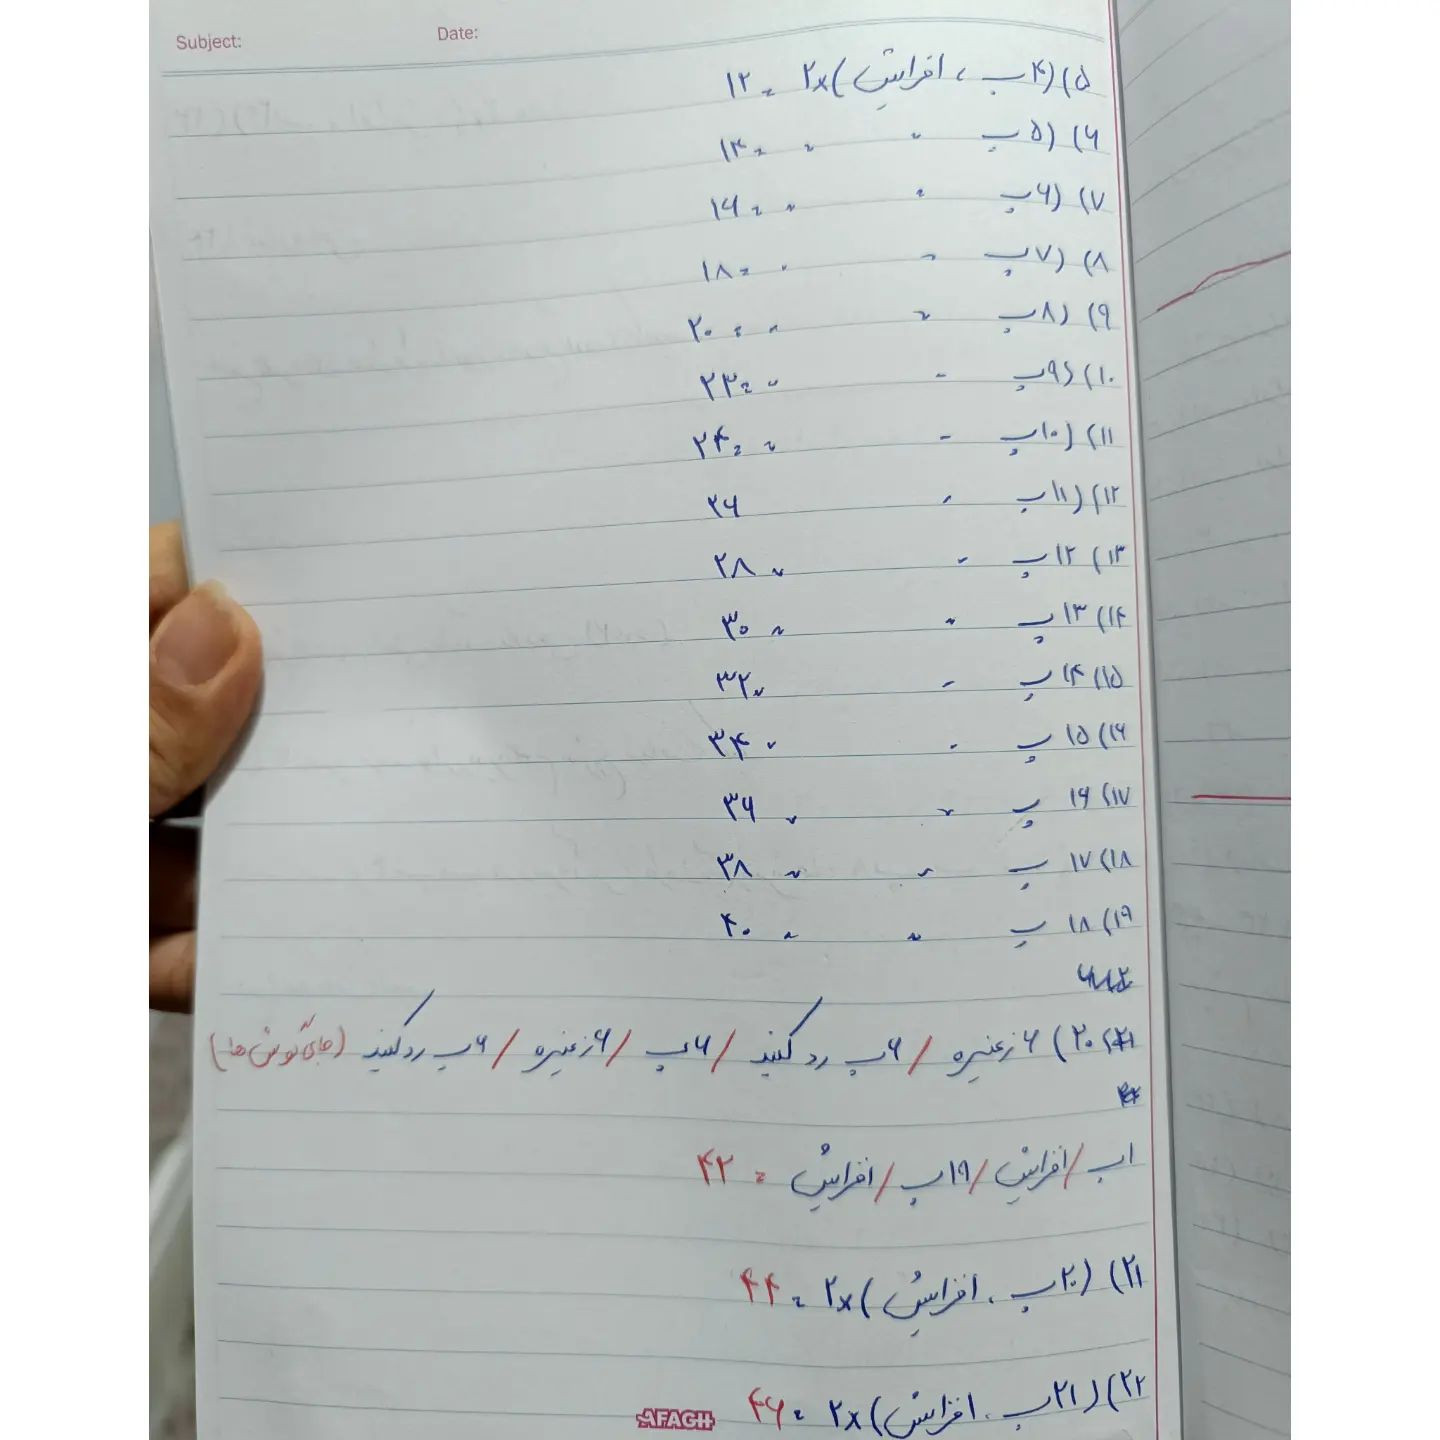 Subject: Date:
۵) (۴پ ، افزایش) ×۲ = ۱۲
۶) (۵پ " " = ۱۴
۷) (۶پ " " = ۱۶
۸) (۷پ " " = ۱۸
۹) (۸پ " " = ۲۰
۱۰) (۹پ " " = ۲۳
۱۱) (۱۰پ " " = ۲۴
۱۲) (۱۱پ " ۲۶
۱۳) ۱۲پ " " ۲۸
۱۴) ۱۳پ " " ۳۰
۱۵) ۱۴پ " " ۳۲
۱۶) ۱۵پ " " ۳۴
۱۷) ۱۶ پ " " ۳۶
۱۸) ۱۷ پ " " ۳۸
۱۹) ۱۸ پ " " ۴۰
۲۰) ۶ زنجیره / ۶پ رد کنید / ۶پ / ۶ زنجیره / ۶پ رد کنید (جای گوش ها)
۱پ / افزایش / ۱۹پ / افزایش = ۴۲
۲۱) (۲۰پ ، افزایش) ×۲ = ۴۴
۲۲) (۲۱پ ، افزایش) ×۲ = ۴۶
AFAGH